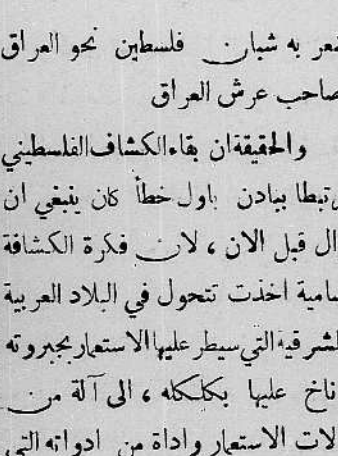 شعر به شبان فلسطين نحو العراق
صاحب عرش العراق
والحقيقة ان بقاء الكشاف الفلسطيني
رتبطا ببادن باول خطأ كان ينبغي ان
ال قبل الان ، لان فكرة الكشافة
سامية اخذت تتحول في البلاد العربية
لشرقية التي سيطر عليها الاستعمار بجبروته
اناخ عليها بكلكله ، الى آلة من
لات الاستعمار واداة من ادواته التي